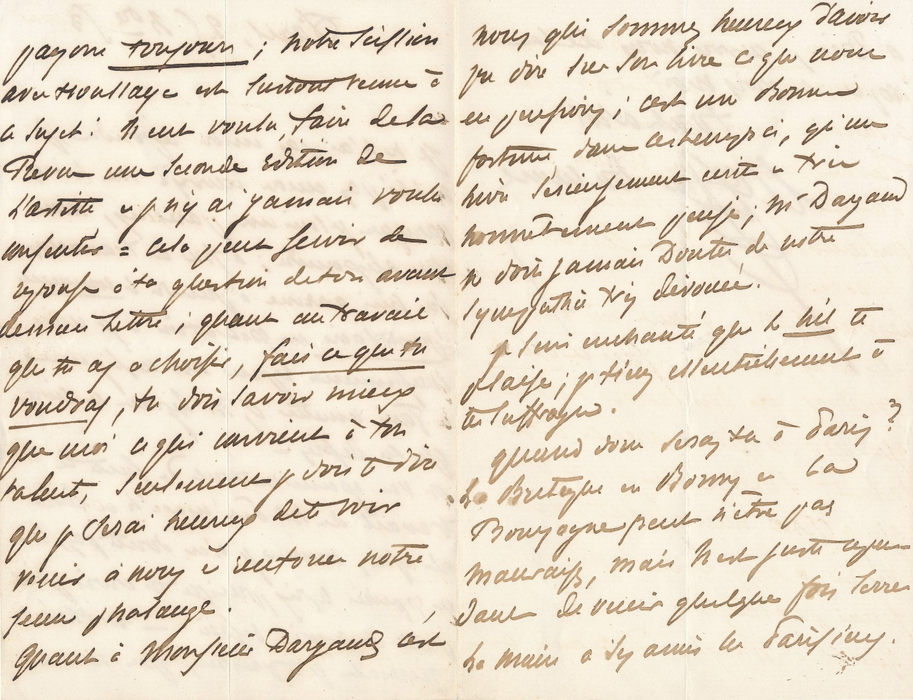 payons toujours ; notre scission
avec Houssaye est surtout venue à
ce sujet : il eut voulu, faire de la
Revue une seconde Edition de
L'artiste et je n'y ai jamais voulu
consentir = cela peut servir de
reponse à ta question de ton avant
derniere lettre ; quant au travail
que tu as à choisir, fais ce que tu
voudras, tu dois savoir mieux
que moi ce qui convient à ton
talent, seulement je dois te dire
que je serai heureux de te voir
venir à nous et renforcer notre
jeune phalange.
Quant à Monsieur Dargaud c'est
nous qui sommes heureux d'avoir
pu dire sur son livre ce que nous
en pensions ; c'est un bonne
fortune dans ces temps ci, qu'un
livre serieusement ecrit et très
honnêtement pensé ; Mr Dargaud
ne doit jamais Douter de notre
sympathie très dévouée.
je suis enchanté que le te
plaise ; je tiens essentiellement à
ton suffrage.
quand donc seras tu à Paris ?
La Bretagne en Bonne et la
Bourgogne peut n'être pas
mauvaise, mais il est juste cepen
dant de venir quelque fois serrer
la main à ses amis les Parisiens.